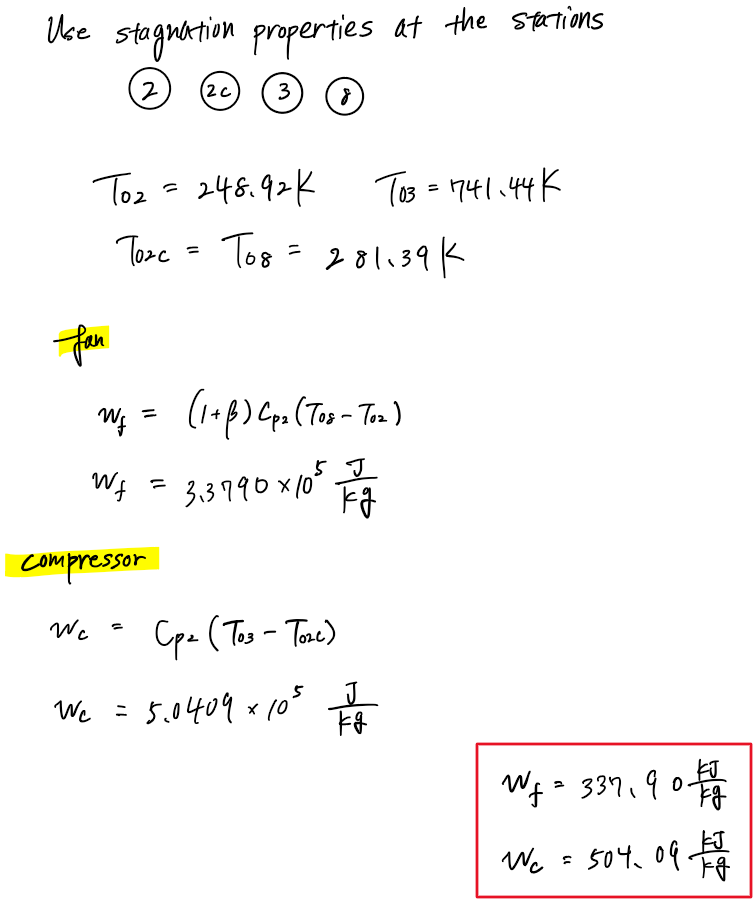 Use stagnation properties at the stations
2 2c 3 8
T02 = 248.92K T03 = 741.44K
T02c = T08 = 281.39K
fan
wf = (1+β)Cp2(T08 - T02)
wf = 3.3790 × 10^5 J/kg
compressor
wc = Cp2(T03 - T02c)
wc = 5.0409 × 10^5 J/kg
wf = 337.90 kJ/kg
wc = 504.09 kJ/kg